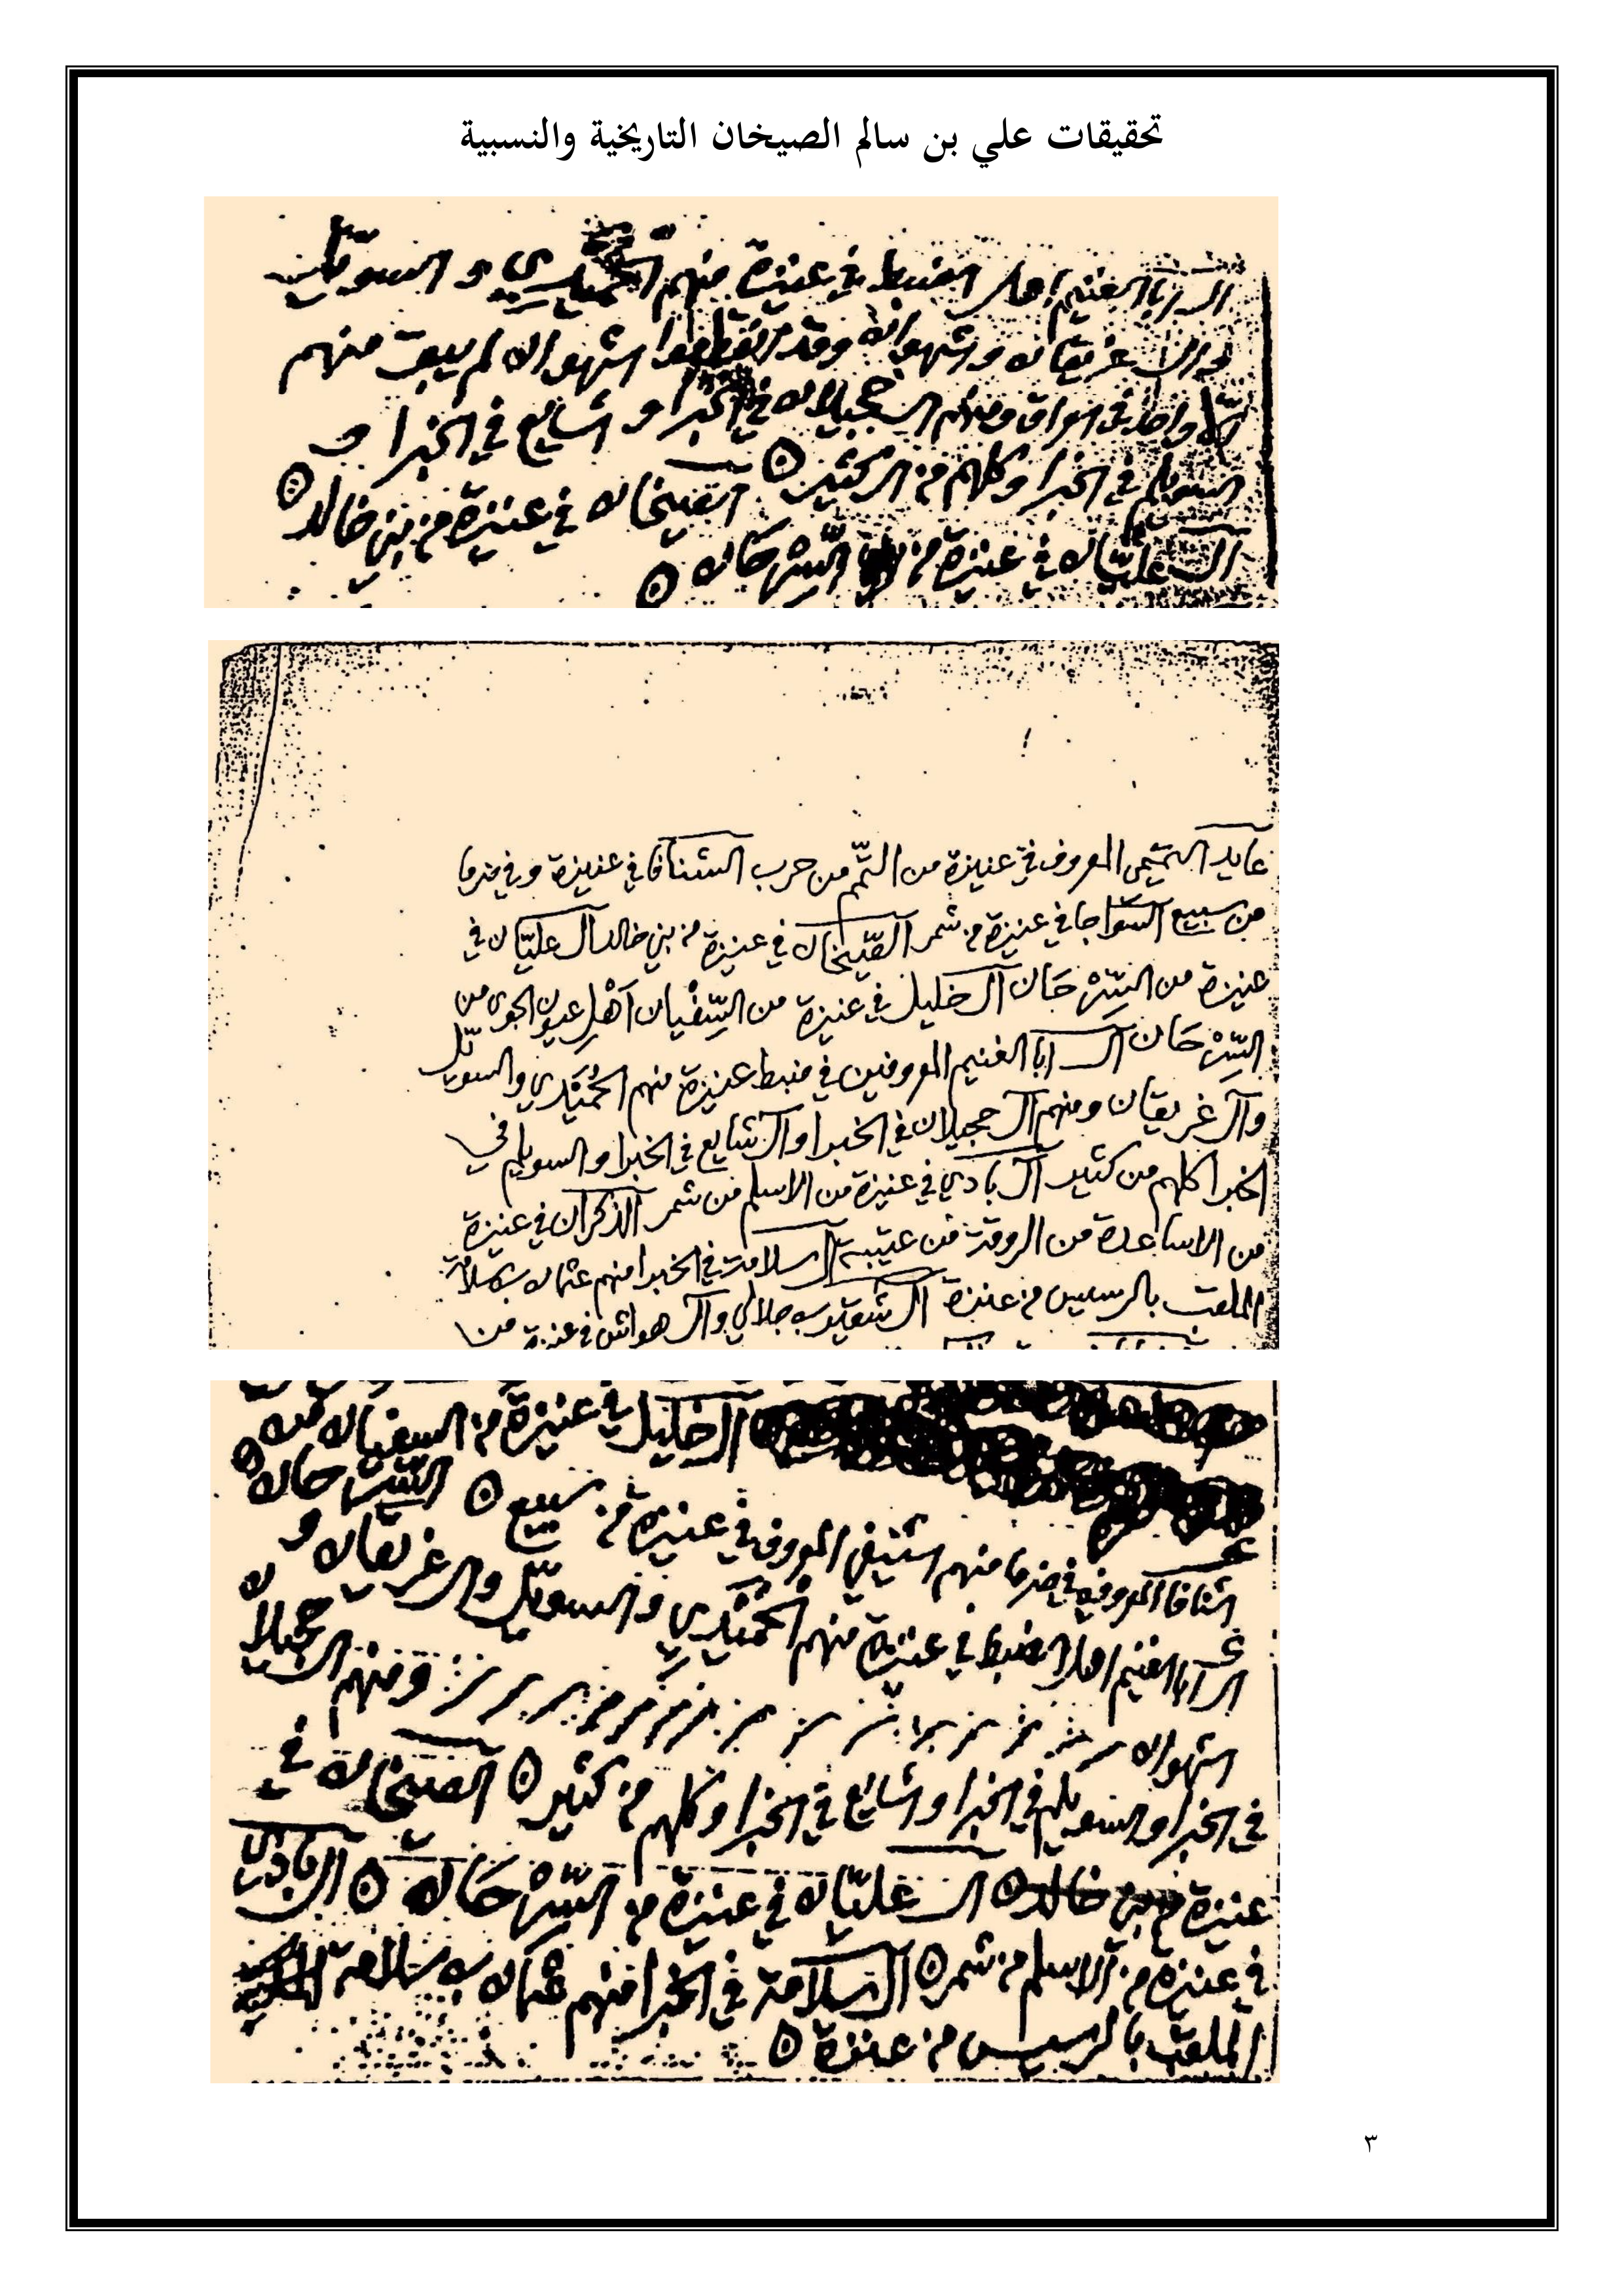 تحقيقات علي بن سالم الصيخان التاريخية والنسبية
ال ابا الغنيم اهل الضبط في عنيزة منهم الحميدي و السويل
وال غريقان و شهوان وقد انقطعوا اشهوان لم يبق منهم
الا واحد في العراق ومنهم ال حجيلان في الخبرا و الشايع في الخبرا و
السويلم في الخبرا وكلهم من ال كثير ۞ الصيخان في عنيزة من بني خالد ۞
ال عليان في عنيزة من السرحان ۞
عايد التميمي المعروف في عنيزة من التمم من حرب الشنافا في عنيزة وفي ضرما
من سبيع السواجا في عنيزة من شمر الصيخان في عنيزة من بني خالد ال عليان في
عنيزة من السرحان ال خليل في عنيزة من السفيان اهل عيون الجوى من
السرحان ال ابا الغنيم المعروفين في ضبط عنيزة منهم الحميدي والسويل
وال غريقان ومنهم ال حجيلان في الخبرا وال شايع في الخبرا والسويلم في
الخبرا كلهم من كثير ال بادي في عنيزة من الاسلم من شمر الذكران في عنيزة
من الاساعدة من الروقة من عتيبة ال سلامة في الخبرا منهم عثمان بن سلامة
الملقب بالرسيس من عنزة ال شعيب جلالي وال هواش في عنيزة من
ال خليل في عنيزة من السفيان من
السرحان ۞
الشنافا المعروفين في ضرما منهم الشنيفي المعروف في عنيزة من سبيع ۞
ال ابا الغنيم اهل الضبط في عنيزة منهم الحميدي والسويل وال غريقان و
اشهوان ومنهم ال حجيلان
في الخبرا والسويلم في الخبرا والشايع في الخبرا وكلهم من كثير ۞ الصيخان في
عنيزة من بني خالد ۞ ال عليان في عنيزة من السرحان ۞ ال بادي
في عنيزة من الاسلم من شمر ۞ ال سلامة في الخبرا منهم عثمان بن سلامة
الملقب بالرسيس من عنزة ۞
٣